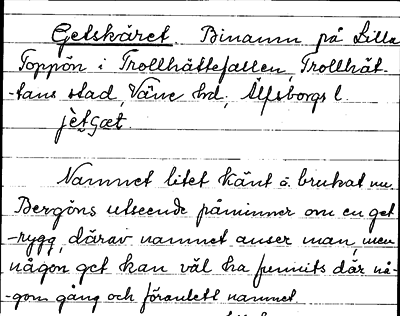 Getskäret. Binamn på Lilla
Toppön i Trollhättefallen, Trollhät-
-tans stad, Väne hd, Älfsborgs l.
Namnet litet känt o. brukat nu.
Bergöns utseende påminner om en get
-rygg, därav namnet anser man, men
någon get kan väl ha funnits där nå-
-gon gång och föranlett namnet